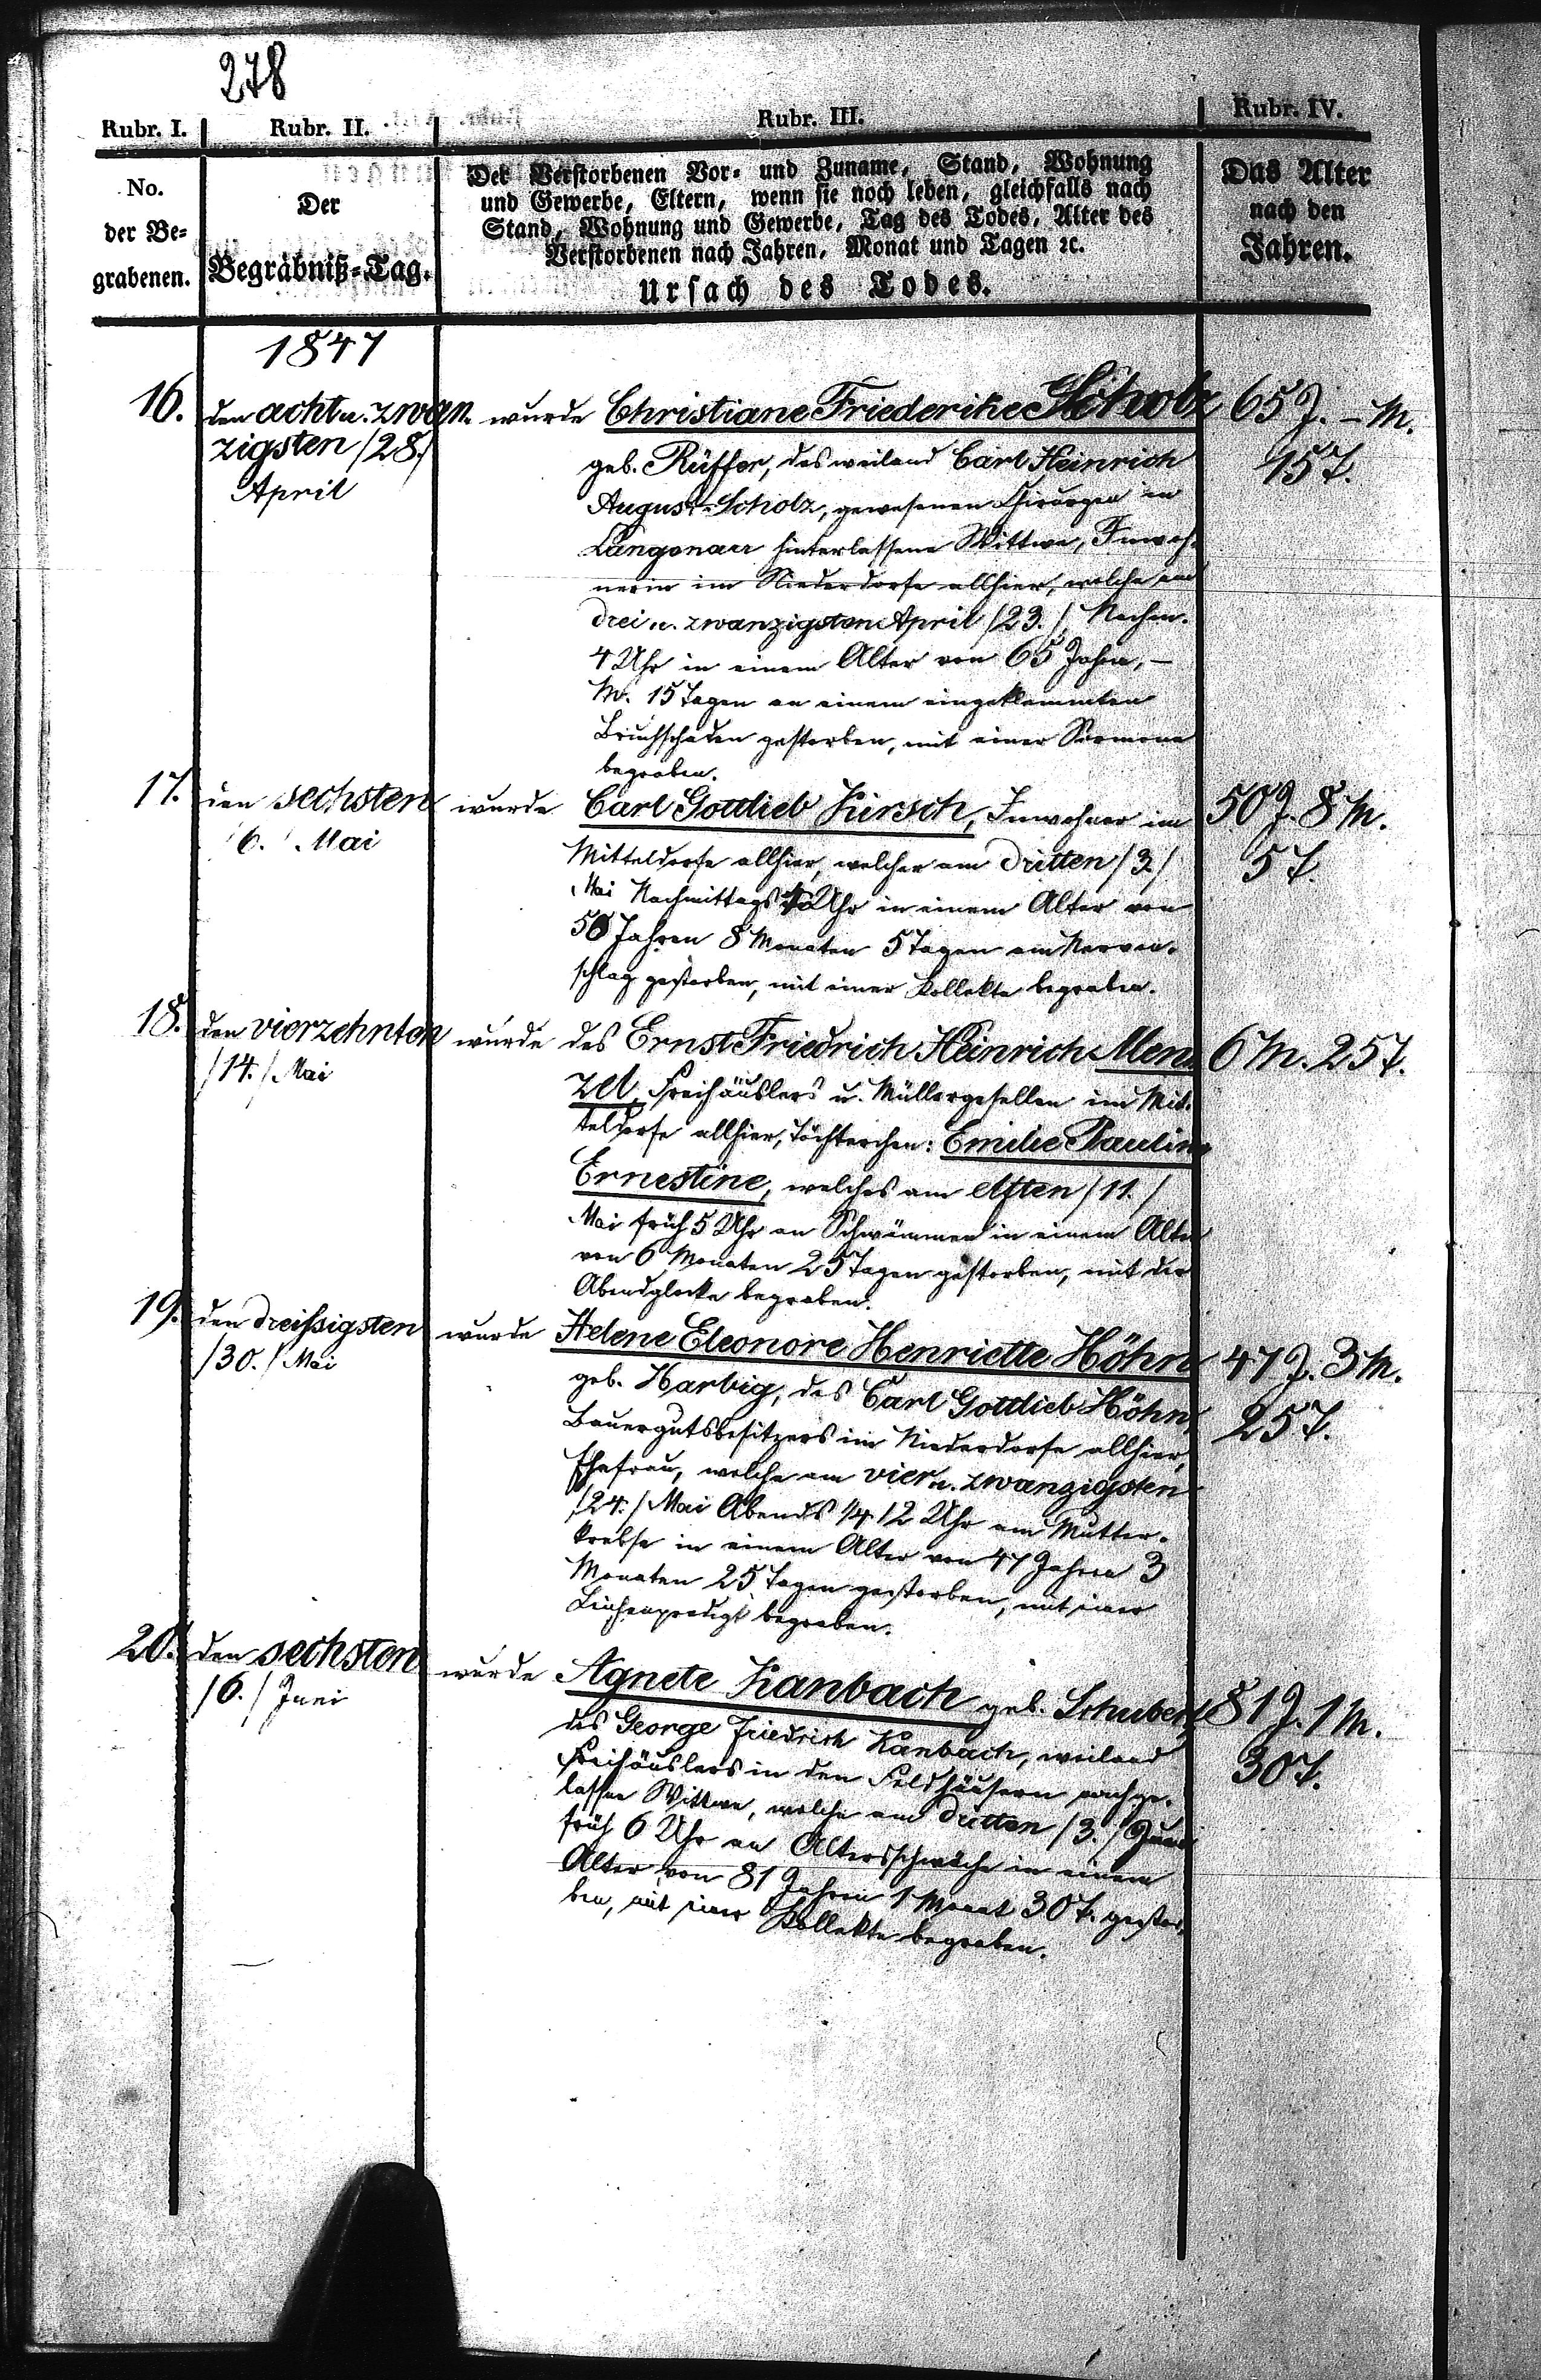 278
Rubr. I. Rubr. II. Rubr. III. Rubr. IV.
No.
der Be-
grabenen.
Der
Begräbniß-Tag.
Des Verstorbenen Vor- und Zuname, Stand, Wohnung
und Gewerbe, Eltern, wenn sie noch leben, gleichfalls nach
Stand, Wohnung und Gewerbe, Tag des Todes, Alter des
Verstorbenen nach Jahren, Monat und Tagen ꝛc.
Ursach des Todes.
Das Alter
nach den
Jahren.
1847
16. den acht u. zwan- wurde Christiane Friederike Scholz 65 J. – M.
zigsten /28./ geb. Rüffer, des weiland Carl Heinrich 15 T.
April August Scholz, gewesenen Chirurgen in
Langenau hinterlassene Wittwe, Inwoh-
nerin im Niederdorfe allhier, welche am
drei u. zwanzigsten April /23./, Nachm.
4 Uhr in einem Alter von 65 Jahren, –
M. 15 Tagen an einem eingeklemmten
Bruchschaden gestorben, mit einer Sermone
begraben.
17. den sechsten wurde Carl Gottlieb Kirsch, Inwohner im 50 J. 8 M.
/6./ Mai Mitteldorfe allhier, welcher am dritten /3./ 5 T.
Mai Nachmittags Uhr in einem Alter von
50 Jahren 8 Monaten 5 Tagen am Nerven-
schlag gestorben, mit einer Kollekte begraben.
18. den vierzehnten wurde des Ernst Friedrich Heinrich Men- 6 M. 25 T.
/14./ Mai zel, Freihäuslers u. Müllergesellen im Mit-
teldorfe allhier, Töchterchen: Emilie Pauline
Ernestine, welches am elften /11./
Mai früh 5 Uhr an Schwämmen in einem Alter
von 6 Monaten 25 Tagen gestorben, mit der
Abendglocke begraben.
19. den dreißigsten wurde Helene Eleonore Henriette Höhn 47 J. 3 M.
/30./ Mai geb. Harbig, des Carl Gottlieb Höhn, 25 T.
Bauergutsbesitzers im Niederdorfe allhier,
Ehefrau, welche am vier u. zwanzigsten
/24./ Mai Abends 1/4 12 Uhr am Mutter-
krebse in einem Alter von 47 Jahren 3
Monaten 25 Tagen gestorben, mit einer
Leichenpredigt begraben.
20. den sechsten wurde Agnete Kanbach geb. Schubert, 81 J. 1 M.
/6./ Juni des George Friedrich Kanbach, weiland 30 T.
Freihäuslers in den Feldhäusern, nachge-
lassne Wittwe, welche am dritten /3./ Juni
früh 6 Uhr an Altersschwäche in einem
Alter von 81 Jahren 1 Monat 30 T. gestor-
ben, mit einer Kollekte begraben.